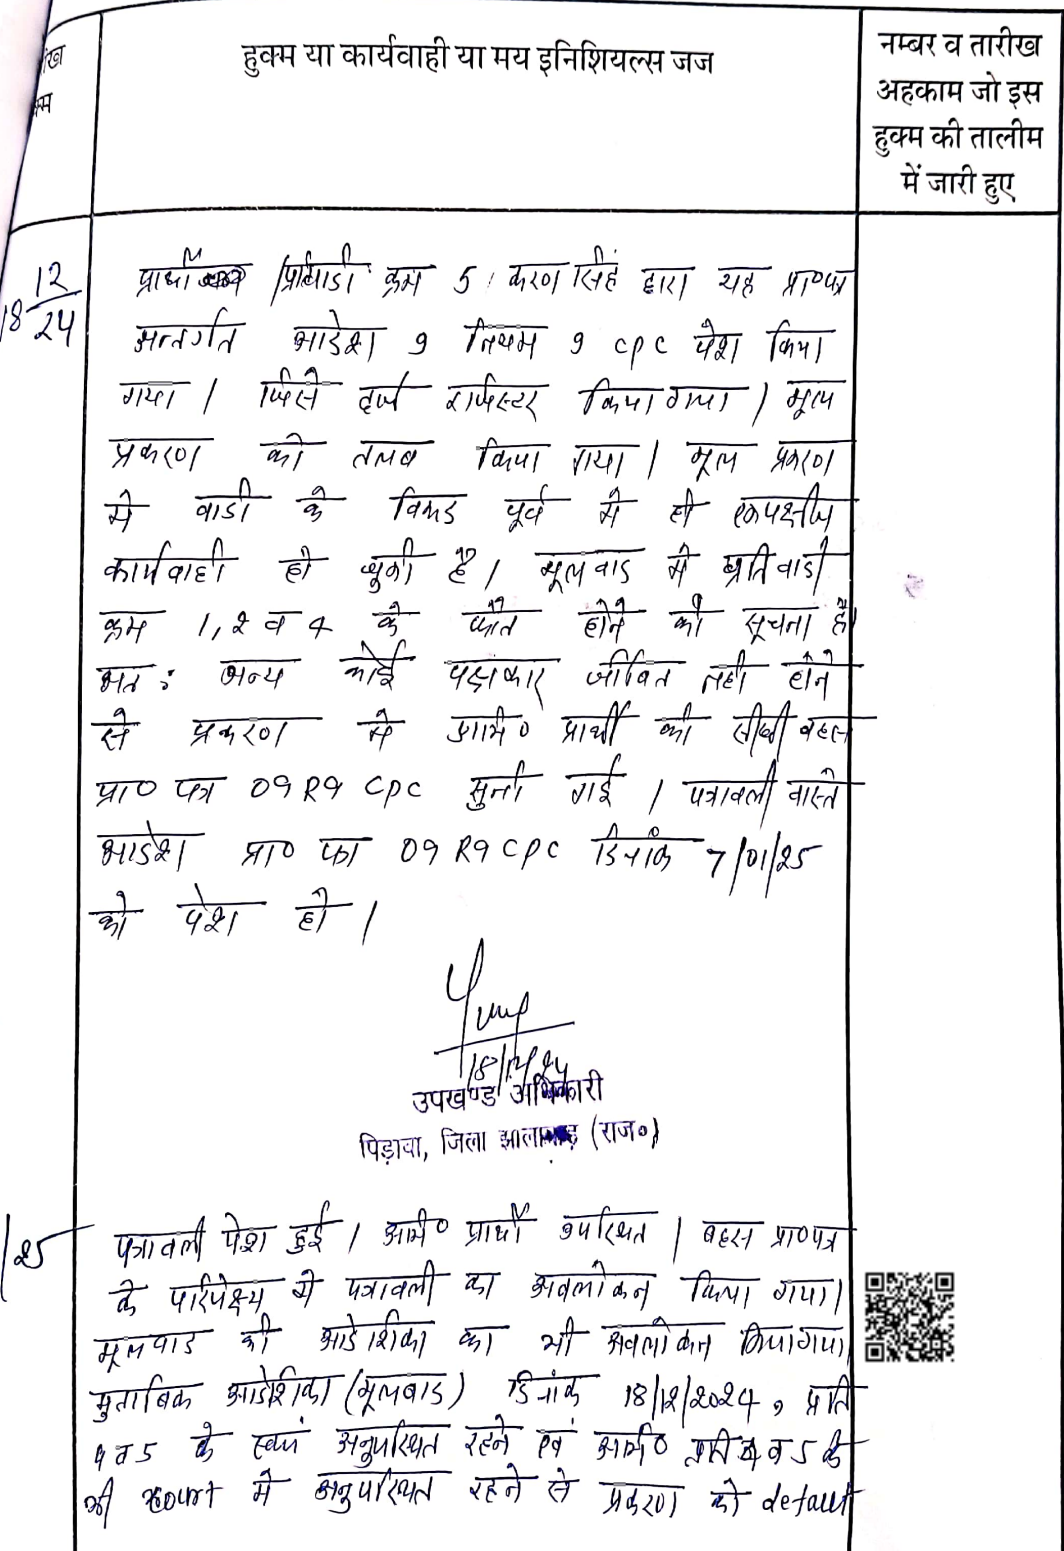 हुक्म या कार्यवाही या मय इनिशियल्स जज
नम्बर व तारीख
अहकाम जो इस
हुक्म की तालीम
में जारी हुए
18 12/24
प्रार्थी /प्रतिवादी क्रम 5 करण सिंह द्वारा यह प्रा०पत्र
अन्तर्गत आदेश 9 नियम 9 CPC पेश किया
गया। जिसे दर्ज रजिस्टर किया गया। मूल
प्रकरण को तलब किया गया। मूल प्रकरण
मे वादी के विरूद्ध पूर्व मे ही एकपक्षीय
कार्यवाही हो चुकी है। मूलवाद मे प्रतिवादी
क्रम 1, 2 व 4 के फौत होने की सूचना है।
अतः अन्य कोई पक्षकार जीवित नही होने
से प्रकरण मे अभि० प्रार्थी की सीधी बहस
प्रा० पत्र 09 R9 CPC सुनी गई। पत्रावली वास्ते
आदेश प्रा० पत्र 09 R9 CPC दिनांक 7/01/25
को पेश हो।
18/12/24
उपखण्ड अधिकारी
पिड़ावा, जिला झालावाड़ (राज०)
/25
पत्रावली पेश हुई। अभि० प्रार्थी उपस्थित। बहस प्रा०पत्र
के परिपेक्ष्य मे पत्रावली का अवलोकन किया गया।
मूलवाद की आदेशिका का भी अवलोकन किया गया।
मुताबिक आदेशिका (मूलवाद) दिनांक 18/12/2024, प्रति
4 व 5 के स्वयं अनुपस्थित रहने एवं अभि० प्रति 4 व 5 के
भी court मे अनुपस्थित रहने से प्रकरण को default